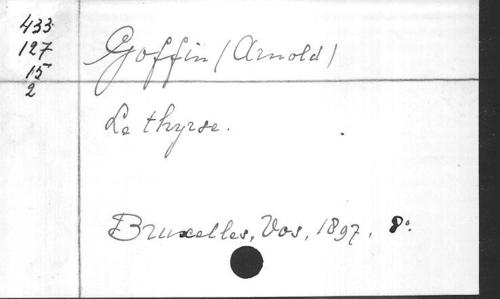 433
127
15
2
Goffin (Arnold)
Le thyrse.
Bruxelles, Vos, 1897. 8°.